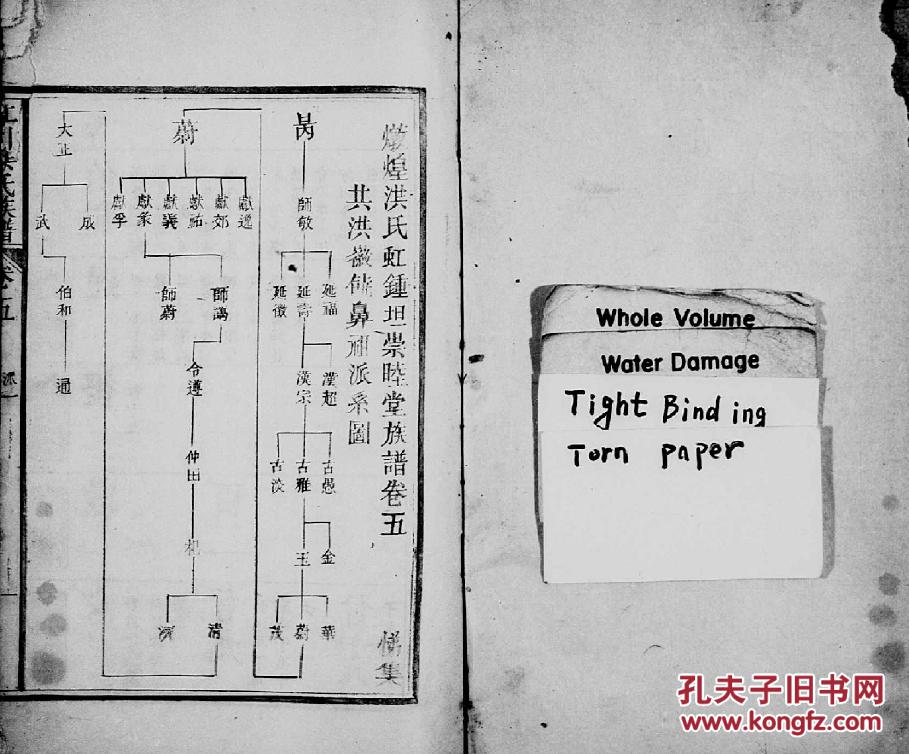 燉煌洪氏虹鍾坦崇睦堂族譜卷五
悌集
共洪嶽饒鼻祖派系圖
昺
師敏
延福
延壽
延徵
漢超
漢宗
古愚
古雅
古淡
金
玉
華
蔚
茂
蔚
獻逵
獻郊
獻祐
獻義
獻象
獻孚
師謁
師蔚
令遵
仲田
杞
清
大正
成
武
伯和
通
Whole Volume
Water Damage
Tight Binding
Torn paper
孔夫子旧书网
www.kongfz.com